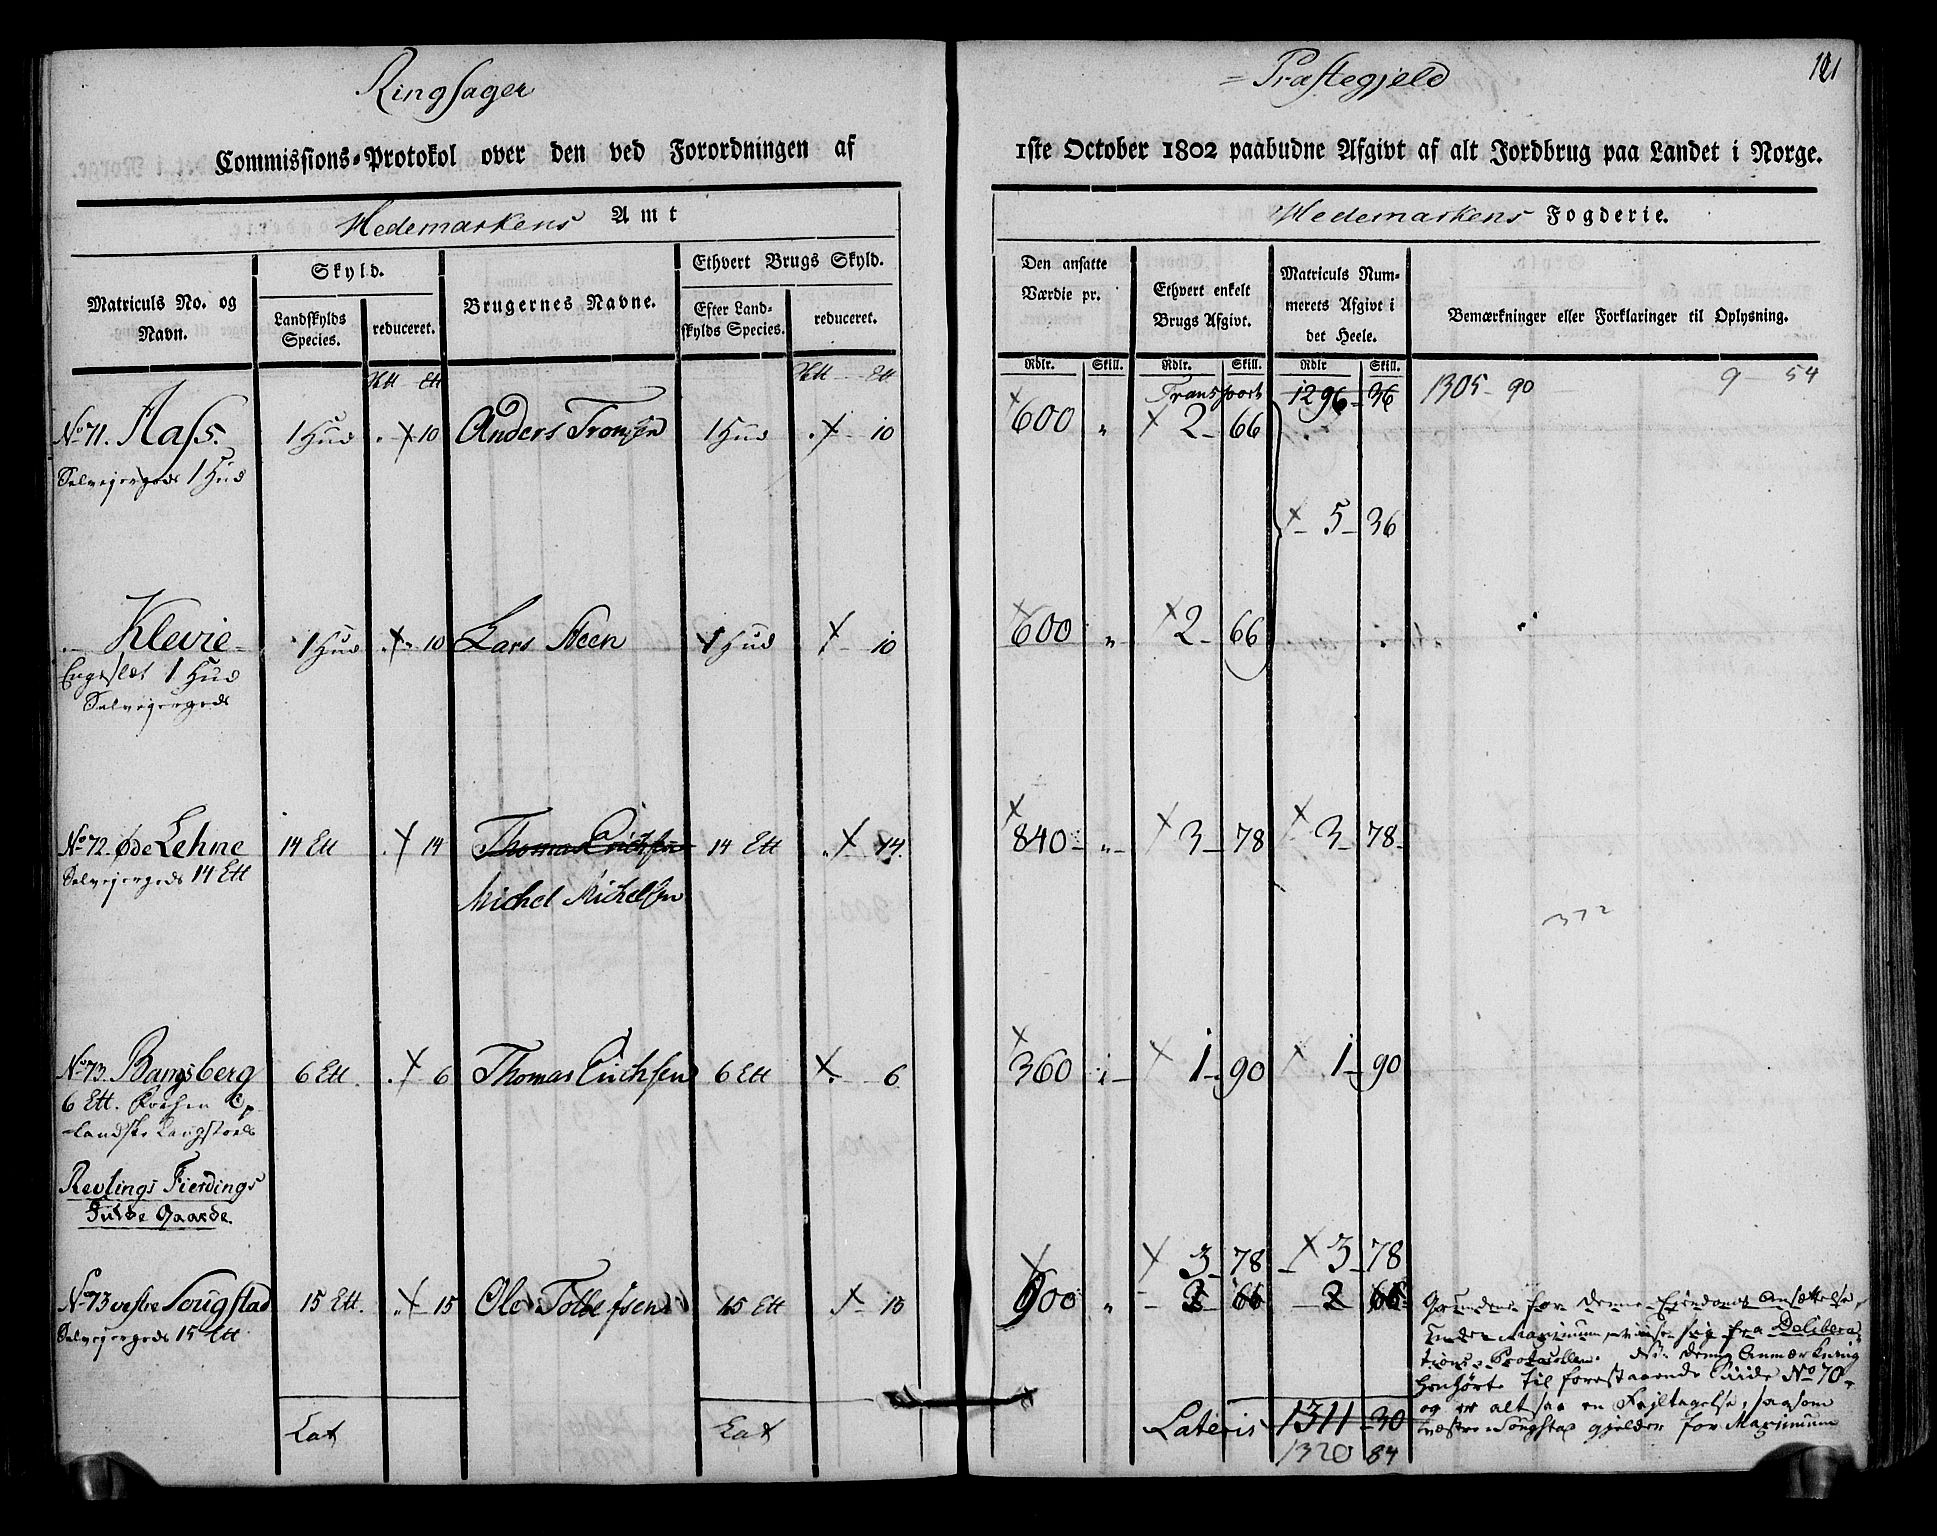 Ringsager
= Præstegjeld
121
Commissions-Protokol over den ved Forordningen af
1ste October 1802 paabudne Afgivt af alt Jordbrug paa Landet i Norge.
Hedemarkens Amt
Hedemarkens Fogderie.
Matriculs No. og Navn.
Skyld.
Landskylds Species.
reduceret.
Brugernes Navne.
Ethvert Brugs Skyld.
Efter Landskylds Species.
reduceret.
Den ansatte Værdie pr.
Ethvert enkelt Brugs Afgivt.
Matriculs Nummerets Afgivt i det Heele.
Bemærkninger eller Forklaringer til Oplysning.
Rdlr. Skill. Rdlr. Skill. Rdlr Skill.
Transport 1296 36 1305 - 90 9 54
No 71. Aass. 1 Hud 10 Anders Tronsen 1 Hud 10 600 " 2 - 66
Selvejergods 1 Hud
5 - 36
Klevie 1 Hud 10 Lars Steen 1 Hud 10 600 " 2 - 66
Engeslet 1 Hud
Selvejergods
No 72. Øde Lehne 14 Ett 14 Thomas Erichsen 14 Ett 14 840 - " - 3 - 78 3 - 78
Selvejergods 14 Ett
Michel Michelsen
372
No 73. Bangsberg 6 Ett. 6 Thomas Erichsen 6 Ett 6 360 1 - 90 1 - 90
6 Ett.
Revlings Fierdings
Fulde Gaarde.
3 - 78 3 - 78
No 73 vestre Sougstad 15 Ett. 15 Ole 15 Ett 15 900 " 2 - 66 2 66
Selvejergods 15 Ett
Grunden for denne Ejendoms Ansættelse
under Maximum sig fra Delibera
tions Protocollen. denne Anmærkning
henhører til forestaaende Side No 70
og er altsaa en Fejltagelse, saasom
vestre Sougstad gjelder for Maximum
Lat Lat Lateris 1311 - 30
1320 84